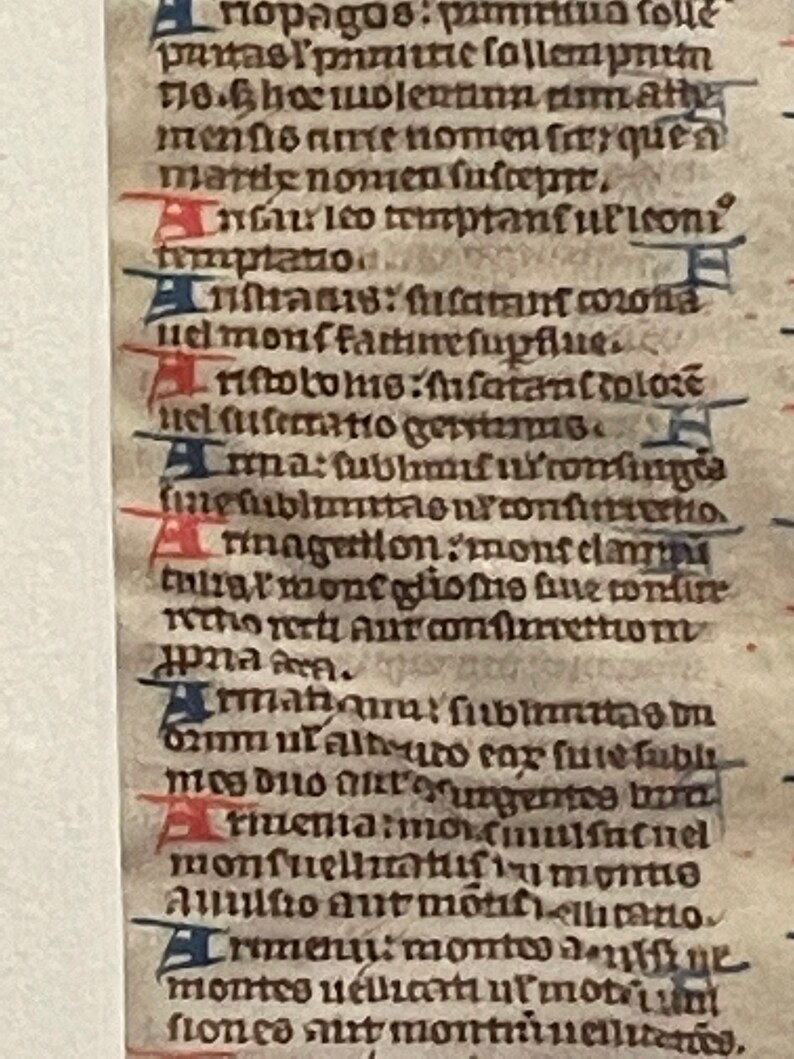 Ariopagos: primitiua solle
pnitas ł primitie sollempnita
tis. sꝫ hoc uiolentum cum athe
niensis curie nomen sit; que a
marte nomen suscepit.
Ansau leo temptans uł leonis
temptatio.
Aristratus: suscitans corona
uel mons facture suꝑflue.
Aristobolus: suscitans dolorē
uel suscitatio germinis.
Arma: sublimis uł consurgēs
siue sublimitas uł consurrectio.
Armagedon: mons
mons głiosus siue consur
rectio tecti aut consurrectio in
pͥma
Armathaim: sublimitas du
orum uł eoꝝ siue subli
mes duo aut surgentes
Armenia: mons uulsus uel
mons uellicatus uł montis
auulsio aut mōtis uellicatio.
Armenii: montes auulsi uel
montes uellicati uł
siones aut montiū uellicatiōes.